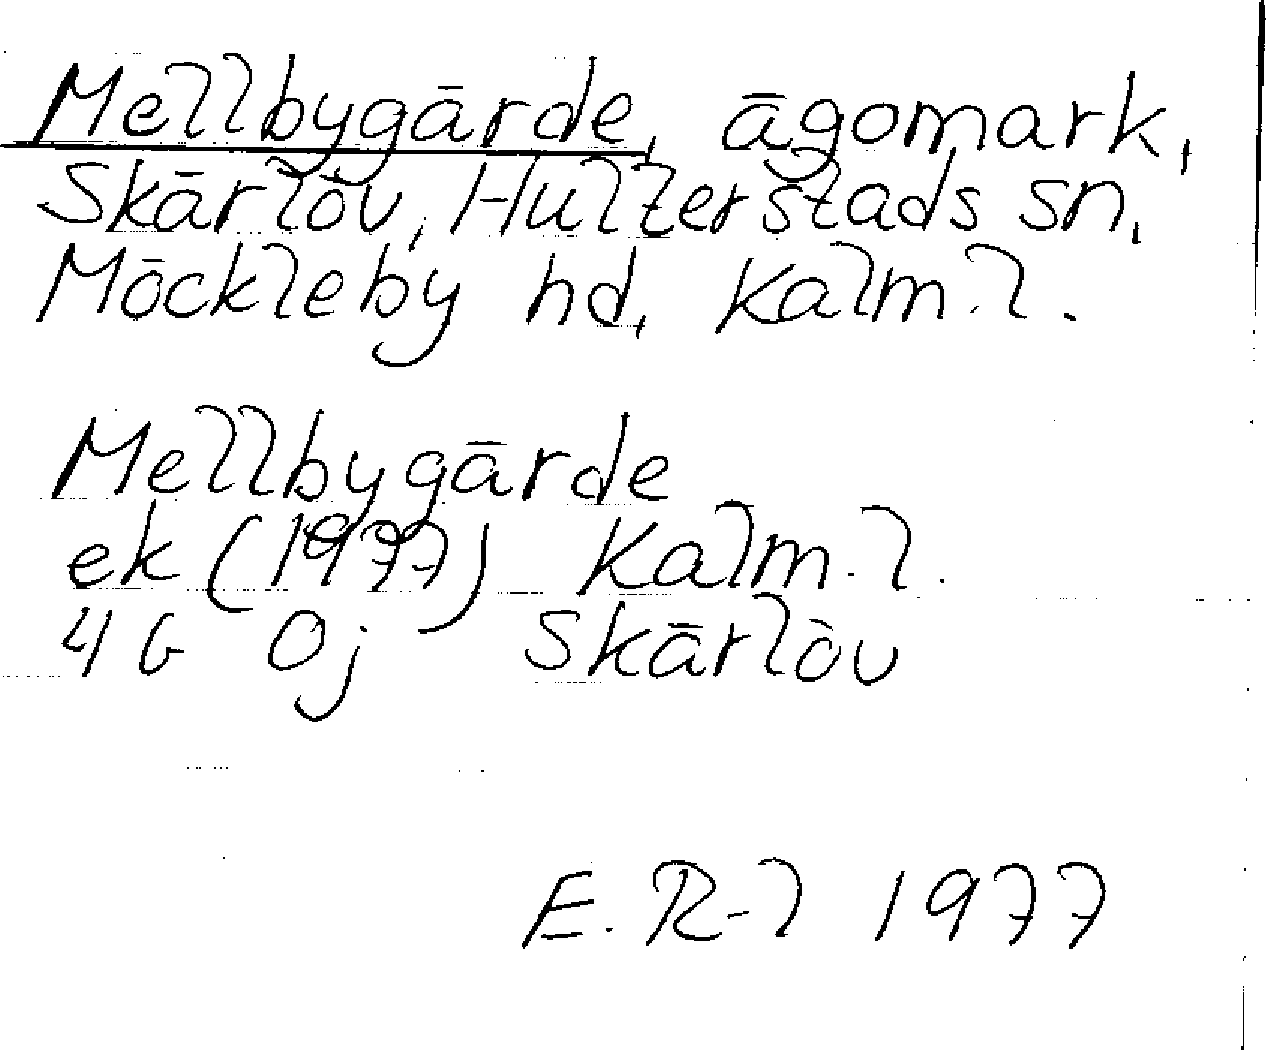 Mellbygärde, ägomark,
Skärlöv, Hulterstads sn,
Möckleby hd, Kalm.l.
Mellbygärde
ek (1977) Kalm.l.
4G 0j Skärlöv
E.R-l 1977